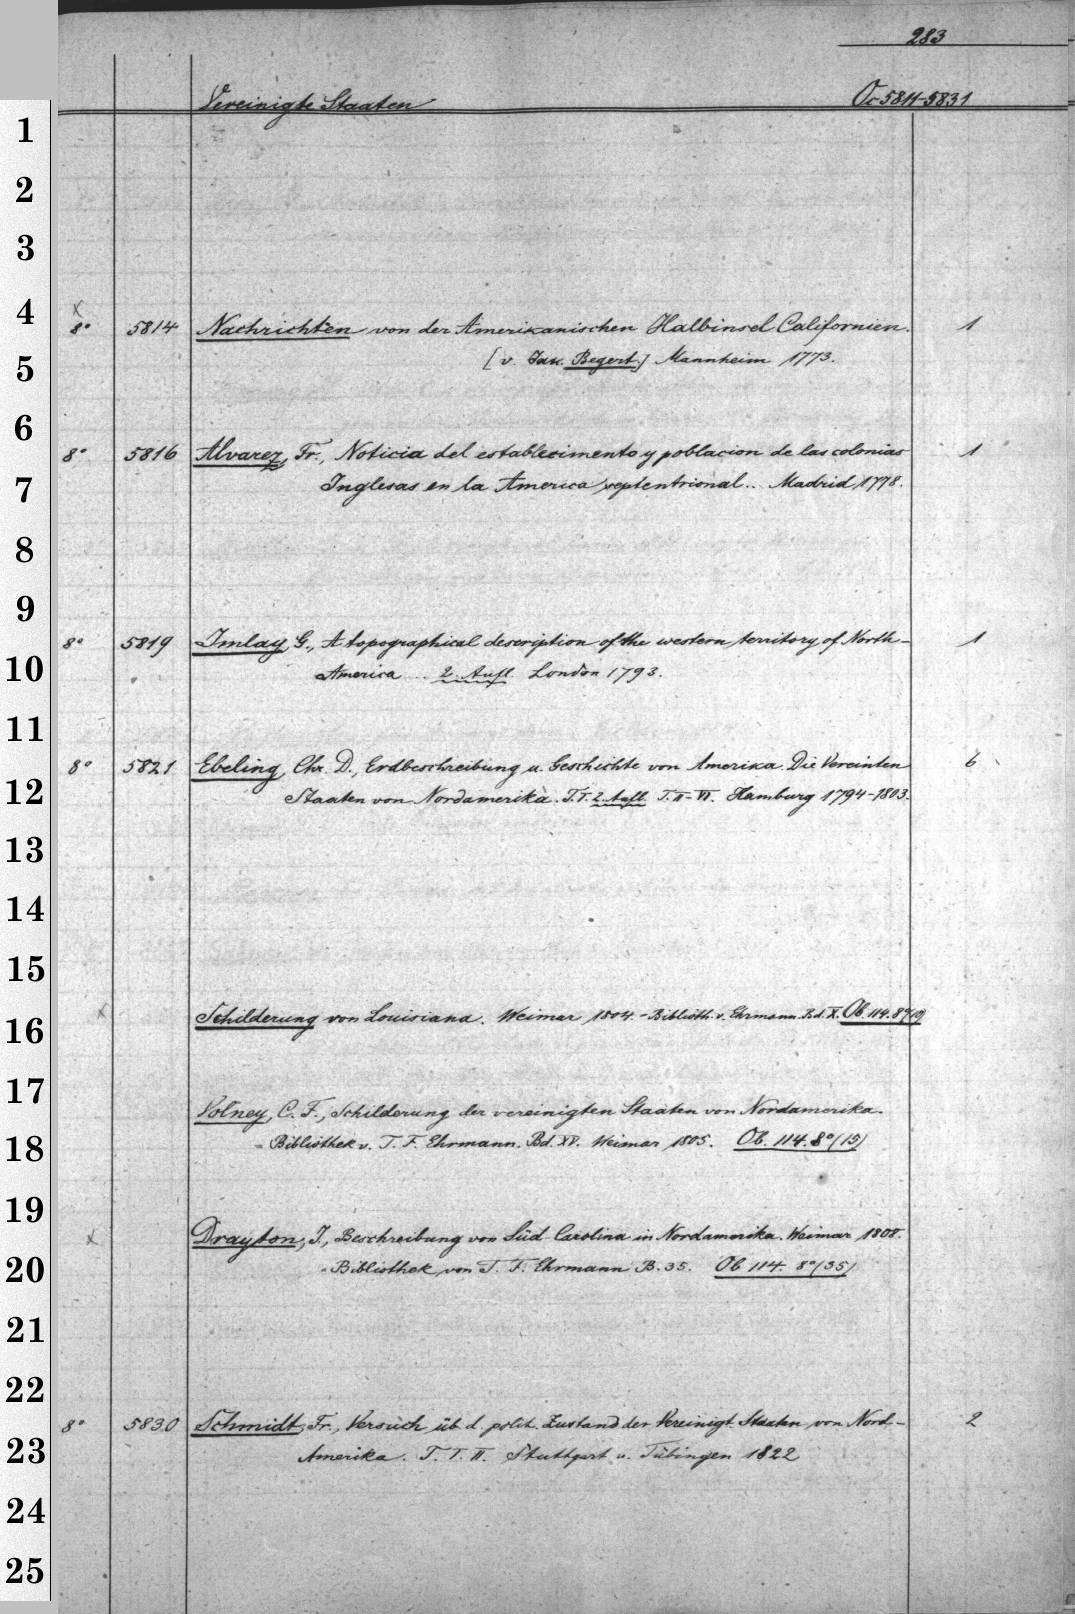 283
Vereinigte Staaten Oc 5814-5831
1
2
3
4
x
8° 5814 Nachrichten von der Amerikanischen Halbinsel Californien. 1
5
[v. Jak. Begert.] Mannheim 1773.
6
8° 5816 Alvarez, Fr., Noticia del establecimento y poblacion de las colonias 1
7
Inglesas en la America septentrional.. Madrid 1778.
8
9
8° 5819 Imlay, G., A topographical description of the western territory of North- 1
10
America ... 2. Aufl. London 1793.
11
8° 5821 Ebeling, Chr. D., Erdbeschreibung u. Geschichte von Amerika. Die Vereinten 6
12
Staaten von Nordamerika. T. I. 2. Aufl. T. II-VI. Hamburg 1794-1803.
13
14
15
x Schilderung von Louisiana. Weimar 1804. - Biblioth. v. Ehrmann. Bd. X. Ob. 114. 8°(10)
16
17
Volney, C. F., Schilderung der vereinigten Staaten von Nordamerika.
18
= Bibliothek v. T. F. Ehrmann. Bd. XV. Weimar 1805. Ob. 114. 8°(15)
19
x Drayton, J., Beschreibung von Süd-Carolina in Nordamerika. Weimar 1808.
20
= Bibliothek von T. F. Ehrmann B. 35. Ob 114. 8°(35)
21
22
8° 5830 Schmidt, Fr., Versuch üb. d. polit. Zustand der Vereinigt. Staaten von Nord- 2
23
Amerika. T. I. II. Stuttgart u. Tübingen 1822
24
25